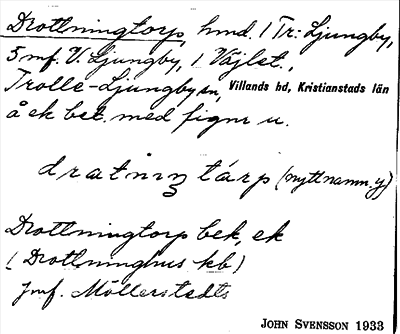 Drottningtorp, hmd. 1 Tr: Ljungby,
5 mf. V. Ljungby, 1 Väjlet.,
Trolle-Ljungby sn, Villands hd, Kristianstads län
å ek bet. med fignr u.
dratniŋ tárp (nytt namn. y)
Drottningtorp bek, ek
(Drottninghus kb)
Jmf. Möllerstedts
JOHN SVENSSON 1933